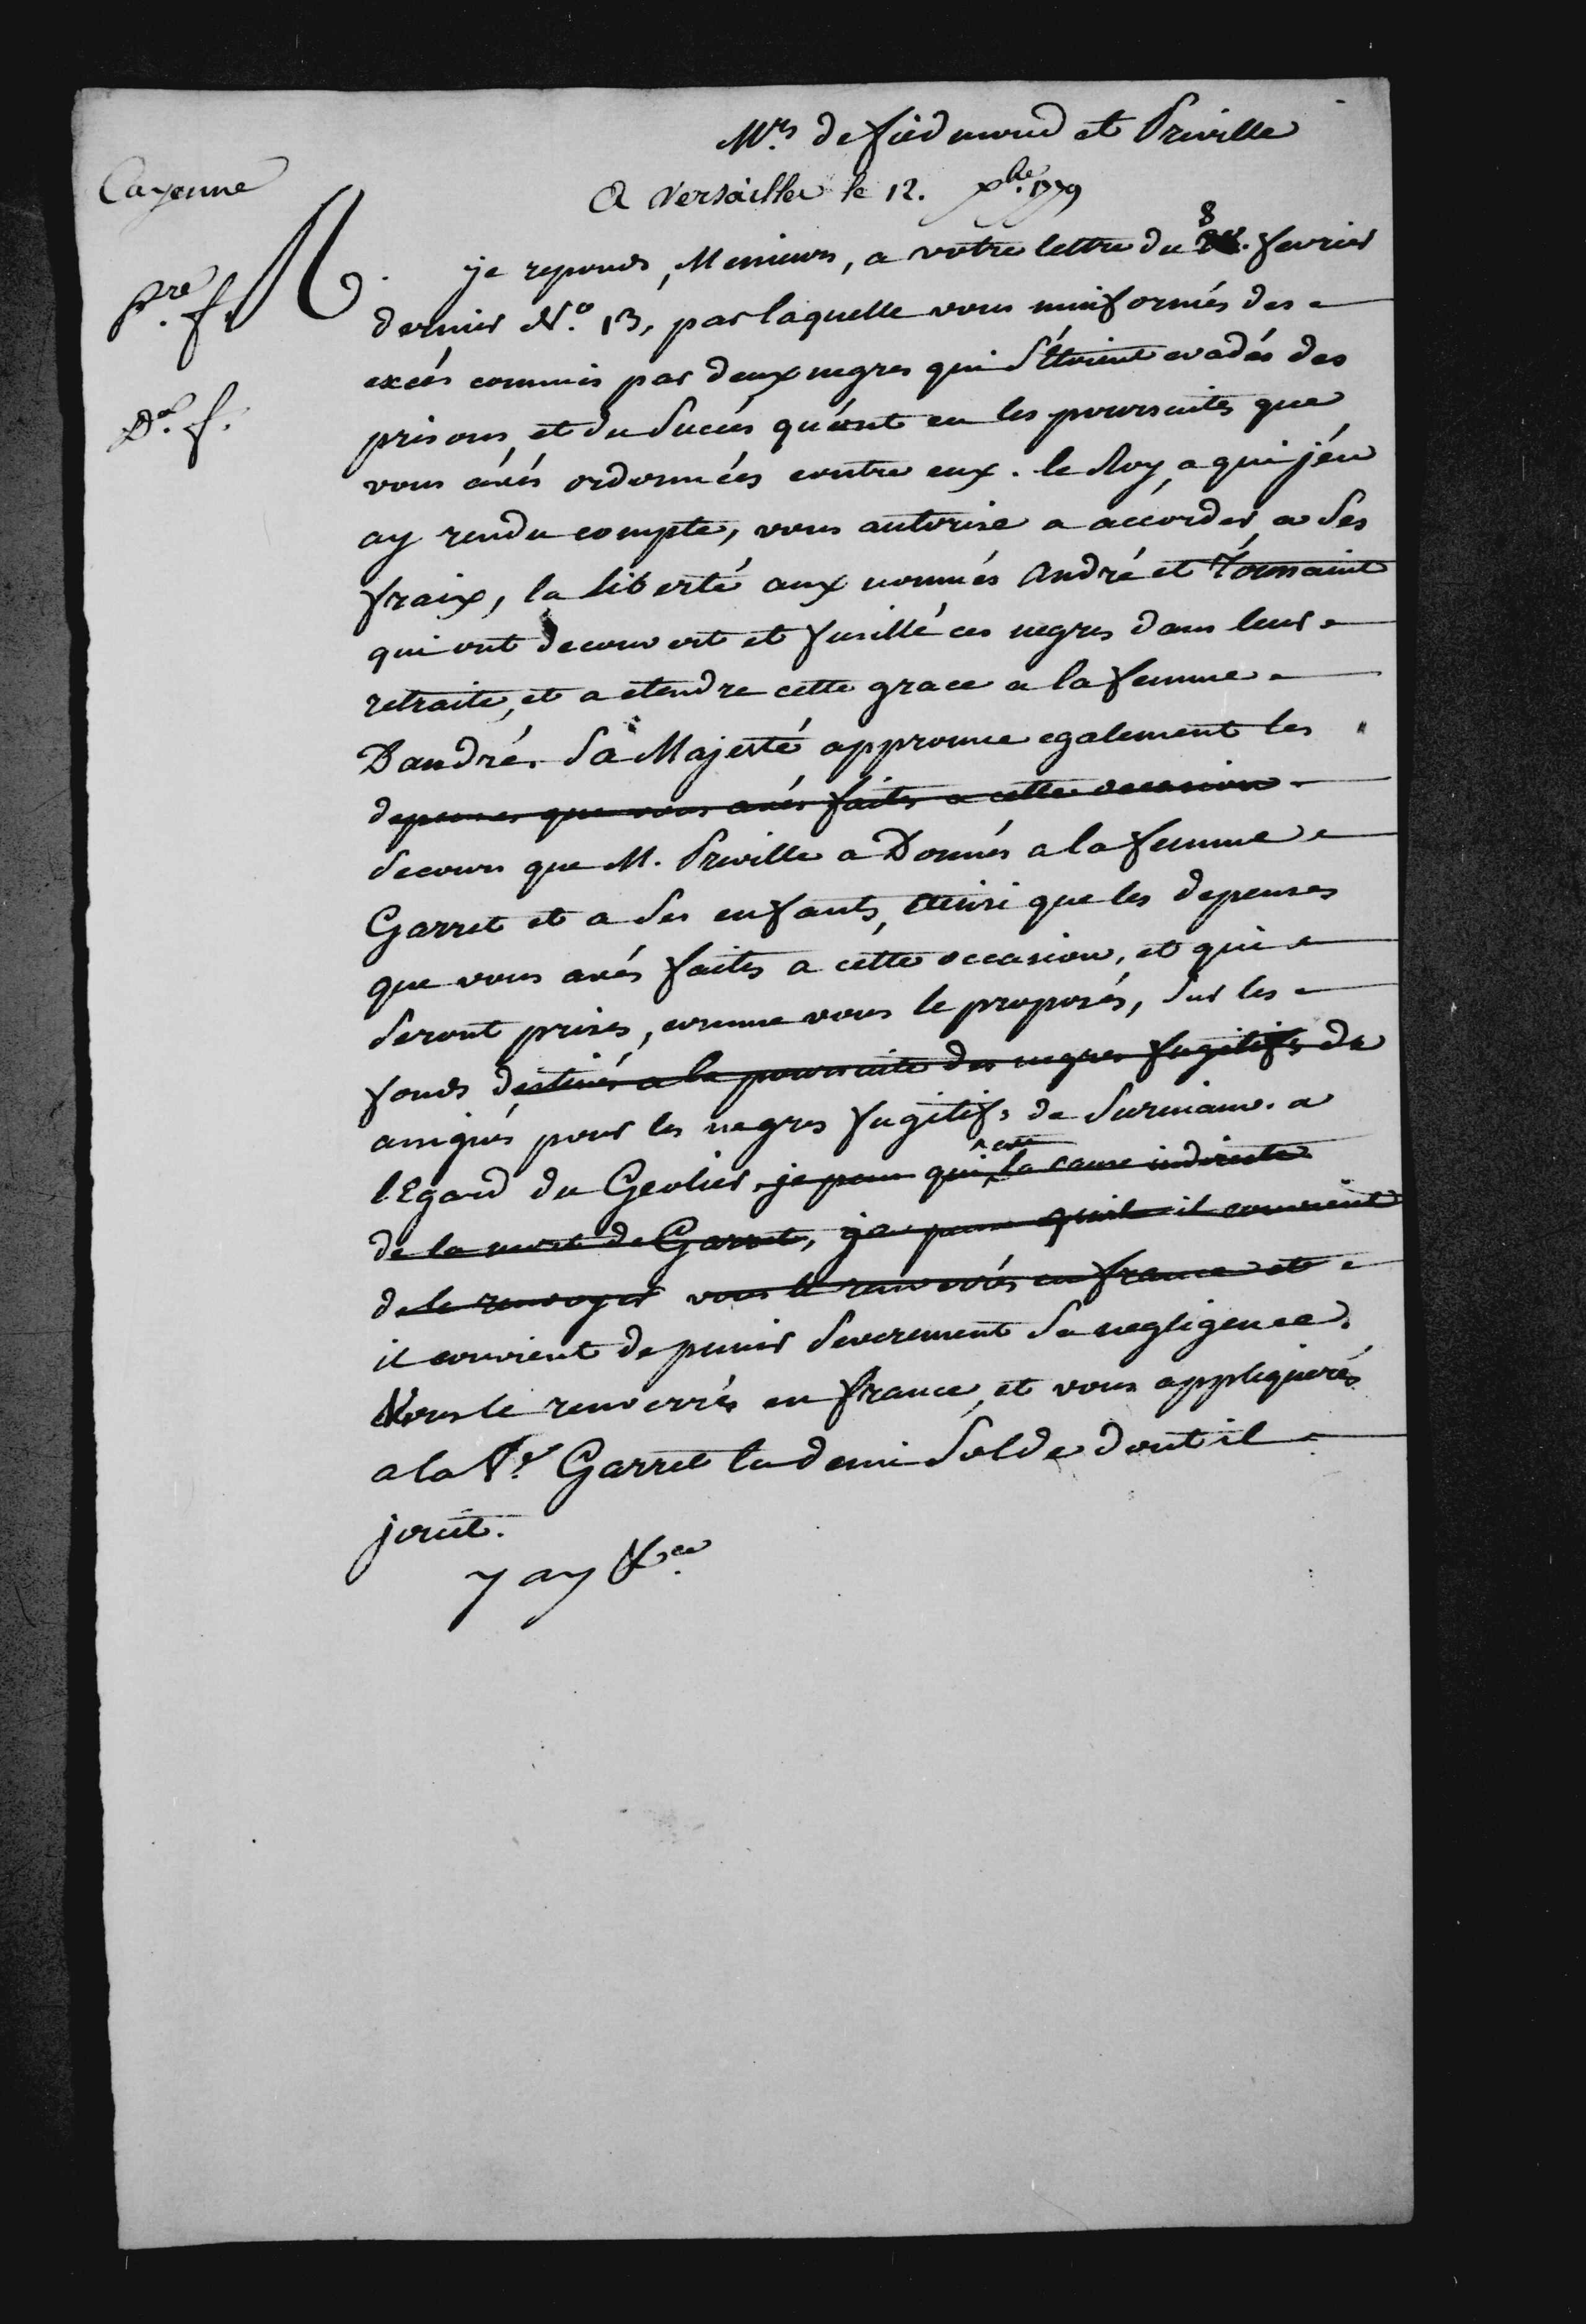 Mrs. de fiedmond et Preville
Cayenne
A Versailles le 12. Xbre. 1779
Pre. f.
je reponds, Messieurs, a votre lettre du 8 fevrier
dernier N.o 13, par laquelle vous m'informés des
excés commis par deux negres qui s'étoient evadés des
Do. f.
prisons, et du Succés qu'ont eu les poursuites que
vous avés ordonnées contre eux. le Roy, a qui j'en
ay rendu compte, vous autorise a accorder, a Ses
fraix, la liberté aux nommés André et Toussaint
qui ont decouvert et fusillé ces negres dans leur
retraite, et a etendre cette grace a la femme
D'andré. Sa Majesté approuve egalement les
depenses que vous avés faites a cette occasion
Secours que M. Preville a Donnés a la femme
Garret et a Ses enfants, ainsi que les depenses
que vous avés faites a cette occasion, et qui
Seront prises, comme vous le proposés, Sur les
fonds destinés a la poursuite des negres fugitifs de
assignés pour les negres fugitifs de Surinam. a
l'Egard du Geolier, je pense qui la cause indirecte
de la mort de Garret, je pense qu'il il convient
de le renvoyer vous le renverrés en france et
il convient de punir Severement Sa negligence.
Vous le renverrés en france, et vous appliquerés
a la Ve. Garret la demi Solde dont il
jouit.
J'ay &ca